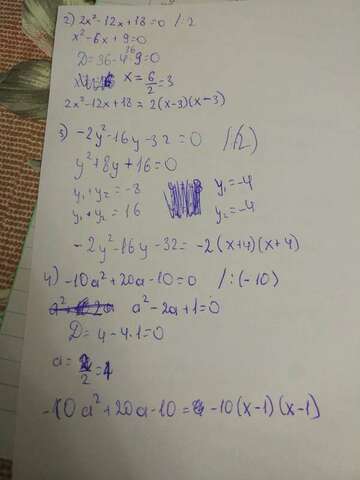 2) 2x²-12x+18=0 /:2
x²-6x+9=0
D=36-4·9=0
x=6/2=3
2x²-12x+18=2(x-3)(x-3)
3) -2y²-16y-32=0 /(2)
y²+8y+16=0
y₁+y₂=-8 y₁=-4
y₁+y₂=16 y₂=-4
-2y²-16y-32=-2(x+4)(x+4)
4) -10a²+20a-10=0 /:(-10)
a²-2a+1=0
D=4-4·1=0
a=2/2=1
-10a²+20a-10=-10(x-1)(x-1)